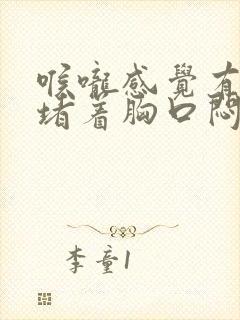 喉嚨感覺有
堵着胸口悶
李童1